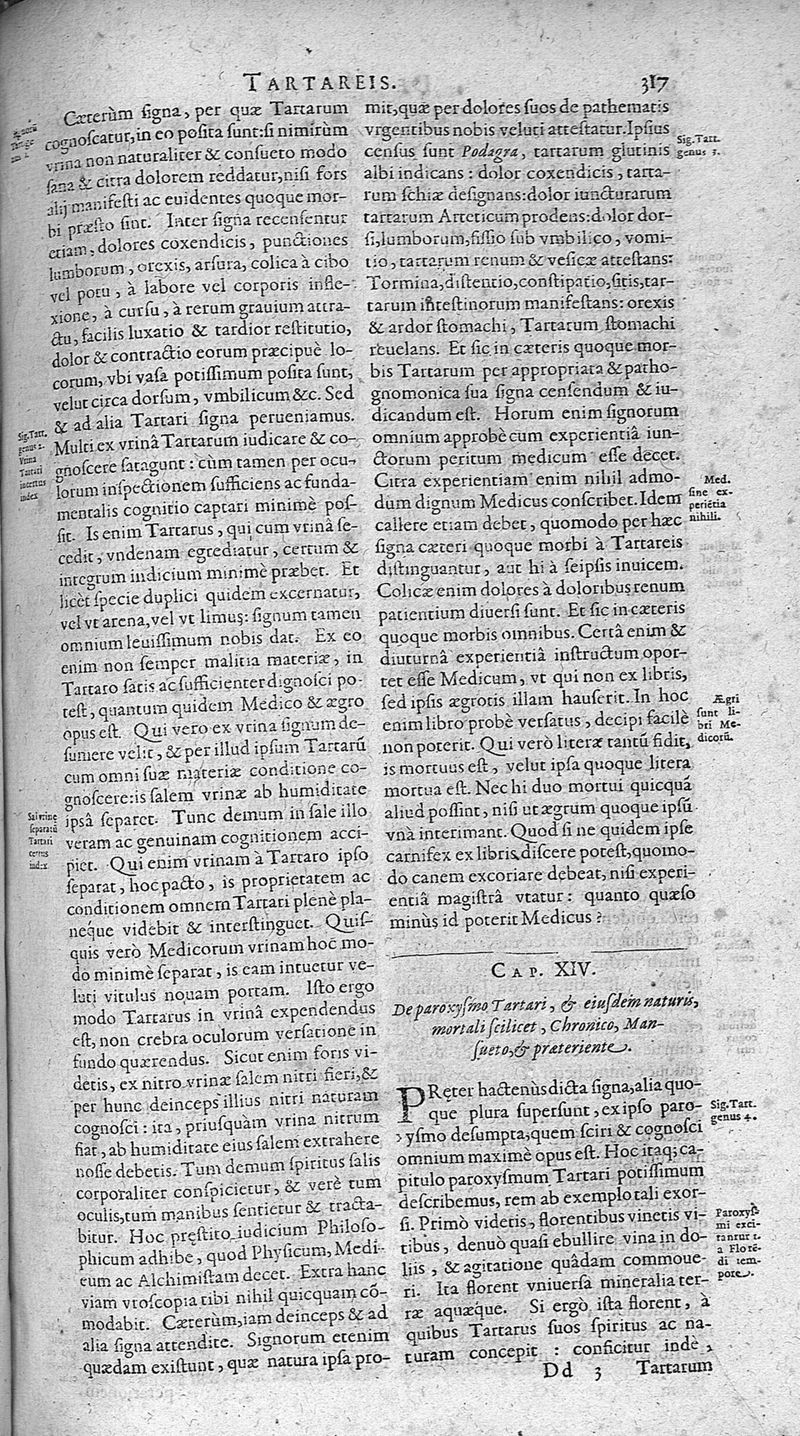 TARTAREIS.
317
Cæterùm ſigna, per quæ Tartarum
cognoſcatur, in eo poſita ſunt: ſi nimirùm
vrina non naturaliter & conſueto modo
ſana & citra dolorem reddatur, niſi fors
alij manifeſti ac euidentes quoque mor-
bi præſto ſint. Inter ſigna recenſentur
etiam, dolores coxendicis, punctiones
lumborum, orexis, arſura, colica à cibo
vel potu, à labore vel corporis infle-
xione, à curſu, à rerum grauium attra-
ctu, facilis luxatio & tardior reſtitutio,
dolor & contractio eorum præcipuè lo-
corum, vbi vaſa potiſſimum poſita ſunt,
velut circa dorſum, vmbilicum &c. Sed
& ad alia Tartari ſigna perueniamus.
Multi ex vrinâ Tartarum iudicare & co-
gnoſcere ſatagunt: cùm tamen per ocu-
lorum inſpectionem ſufficiens ac funda-
mentalis cognitio captari minimè poſ-
ſit. Is enim Tartarus, qui cum vrinâ ſe-
cedit, vndenam egrediatur, certum &
integrum indicium minimè præbet. Et
licèt ſpecie duplici quidem excernatur,
vel vt arena, vel vt limus: ſignum tamen
omnium leuiſſimum nobis dat. Ex eo
enim non ſemper malitia materiæ, in
Tartaro ſatis ac ſufficienter dignoſci po-
teſt, quantum quidem Medico & ægro
opus eſt. Qui vero ex vrina ſignum de-
ſumere velit, & per illud ipſum Tartarũ
cum omni ſuæ materiæ conditione co-
gnoſcere: is ſalem vrinæ ab humiditate
ipsâ ſeparet. Tunc demum in ſale illo
veram ac genuinam cognitionem acci-
piet. Qui enim vrinam à Tartaro ipſo
ſeparat, hoc pacto, is proprietatem ac
conditionem omnem Tartari plenè pla-
neque videbit & interſtinguet. Quiſ-
quis verò Medicorum vrinam hoc mo-
do minimè ſeparat, is eam intuetur ve-
luti vitulus nouam portam. Iſto ergo
modo Tartarus in vrinâ expendendus
eſt, non crebra oculorum verſatione in
fundo quærendus. Sicut enim foris vi-
detis, ex nitro vrinæ ſalem nitri fieri, &
per hunc deinceps illius nitri naturam
cognoſci: ita, priuſquàm vrina nitrum
fiat, ab humiditate eius ſalem extrahere
noſſe debetis. Tum demum ſpiritus ſalis
corporaliter conſpicietur, & verè tum
oculis, tum manibus ſentietur & tracta-
bitur. Hoc pręſtito iudicium Philoſo-
phicum adhibe, quod Phyſicum, Medi-
cum ac Alchimiſtam decet. Extra hanc
viam vroſcopia tibi nihil quicquam cõ-
modabit. Cæterùm, iam deinceps & ad
alia ſigna attendite. Signorum etenim
quædam exiſtunt, quæ natura ipſa pro-
Sig. Tart.
genus 2.
Vrina
Tartari
incertus
index
Sal vrinæ
ſeparatũ
Tartari
certus
index
mit, quæ per dolores ſuos de pathematis
vrgentibus nobis veluti atteſtatur. Ipſius
cenſus ſunt Podagra, tartarum glutinis
albi indicans: dolor coxendicis, tarta-
rum ſchiæ deſignans: dolor iuncturarum
tartarum Arteticum prodens: dolor dor-
ſi, lumborum, fiſſio ſub vmbilico, vomi-
tio, tartarum renum & veſicæ atteſtans:
Tormina, diſtentio, conſtipatio, ſitis, tar-
tarum inteſtinorum manifeſtans: orexis
& ardor ſtomachi, Tartarum ſtomachi
reuelans. Et ſic in cæteris quoque mor-
bis Tartarum per appropriata & patho-
gnomonica ſua ſigna cenſendum & iu-
dicandum eſt. Horum enim ſignorum
omnium approbè cum experientiâ iun-
ctorum peritum medicum eſſe decet.
Citra experientiam enim nihil admo-
dum dignum Medicus conſcribet. Idem
callere etiam debet, quomodo per hæc
ſigna cæteri quoque morbi à Tartareis
diſtinguantur, aut hi à ſeipſis inuicem.
Colicæ enim dolores à doloribus renum
patientium diuerſi ſunt. Et ſic in cæteris
quoque morbis omnibus. Certâ enim &
diuturnâ experientiâ inſtructum opor-
tet eſſe Medicum, vt qui non ex libris,
ſed ipſis ægrotis illam hauſerit. In hoc
enim libro probè verſatus, decipi facilè
non poterit. Qui verò literæ tantũ fidit,
is mortuus eſt, velut ipſa quoque litera
mortua eſt. Nec hi duo mortui quicquã
aliud poſſint, niſi ut ægrum quoque ipſũ
vnà interimant. Quod ſi ne quidem ipſe
carnifex ex libris diſcere poteſt, quomo-
do canem excoriare debeat, niſi experi-
entiâ magiſtrâ vtatur: quanto quæſo
minùs id poterit Medicus?
CAP. XIV.
De paroxyſmo Tartari, & eiuſdem naturis,
mortali ſcilicet, Chronico, Man-
ſueto, & præteriente.
PRęter hactenùs dicta ſigna, alia quo-
que plura ſuperſunt, ex ipſo paro-
xyſmo deſumpta, quem ſciri & cognoſci
omnium maximè opus eſt. Hoc itaq; ca-
pitulo paroxyſmum Tartari potiſſimum
deſcribemus, rem ab exemplo tali exor-
ſi. Primò videtis, florentibus vinetis vi-
tibus, denuò quaſi ebullire vina in do-
liis, & agitatione quâdam commoue-
ri. Ita florent vniuerſa mineralia ter-
ræ aquæque. Si ergò iſta florent, à
quibus Tartarus ſuos ſpiritus ac na-
turam concepit: conficitur indè,
Dd 3 Tartarum
Sig. Tart.
genus 3.
Med.
ſine ex-
periẽtia
nihili.
Ægri
ſunt li-
bri Me-
dicorũ.
Sig. Tart.
genus 4.
Paroxyſ-
mi exci-
tantur t.
a Florẽ-
di tem-
pore.